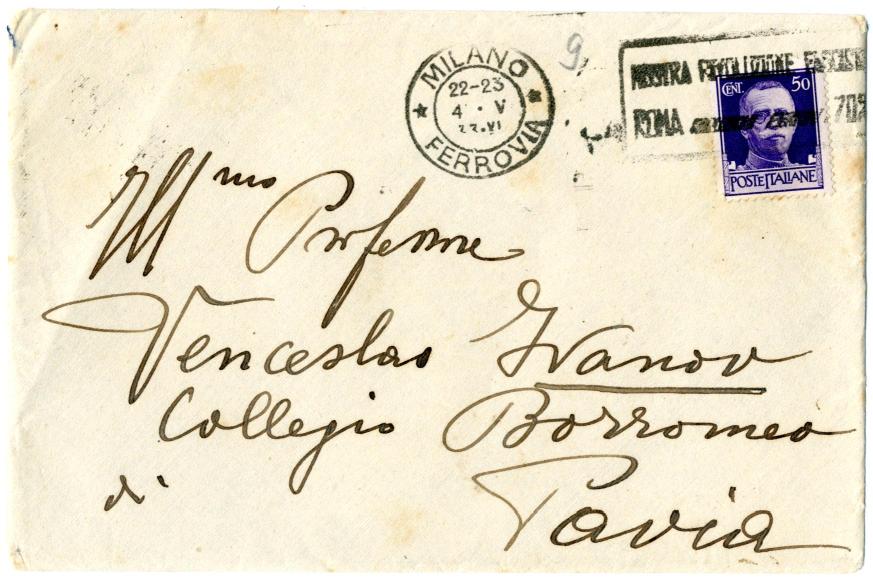 MILANO
22-23
4 · V
33·XI
FERROVIA
9
MOSTRA RIVOLUZIONE FASCIS
ROMA
70%
CENT. 50
POSTE ITALIANE
Ill mo Professore
Venceslao Ivanov
Collegio Borromeo
di Pavia